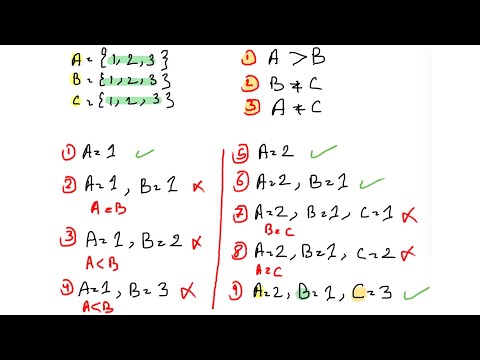 A = {1, 2, 3}
B = {1, 2, 3}
C = {1, 2, 3}
① A > B
② B ≠ C
③ A ≠ C
① A=1 ✓
② A=1, B=1 ✗
A=B
③ A=1, B=2 ✗
A<B
④ A=1, B=3 ✗
A<B
⑤ A=2 ✓
⑥ A=2, B=1 ✓
⑦ A=2, B=1, C=1 ✗
B=C
⑧ A=2, B=1, C=2 ✗
A=C
⑨ A=2, B=1, C=3 ✓